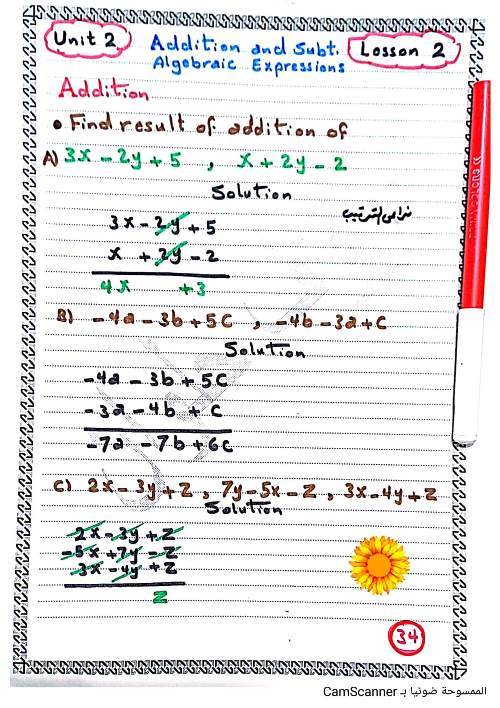 Unit 2
Addition and Subt.
Lesson 2
Algebraic Expressions
Addition
• Find result of addition of
A) 3x - 2y + 5 , x + 2y - 2
Solution
نراعى الترتيب
3x - 2y + 5
x + 2y - 2
4x +3
B) -4a - 3b + 5c , -4b - 3a + c
Solution
-4a - 3b + 5c
-3a - 4b + c
-7a -7b +6c
C) 2x - 3y + z , 7y - 5x - z , 3x - 4y + z
Solution
2x - 3y + z
-5x + 7y - z
3x - 4y + z
z
34
الممسوحة ضوئيا بـ CamScanner